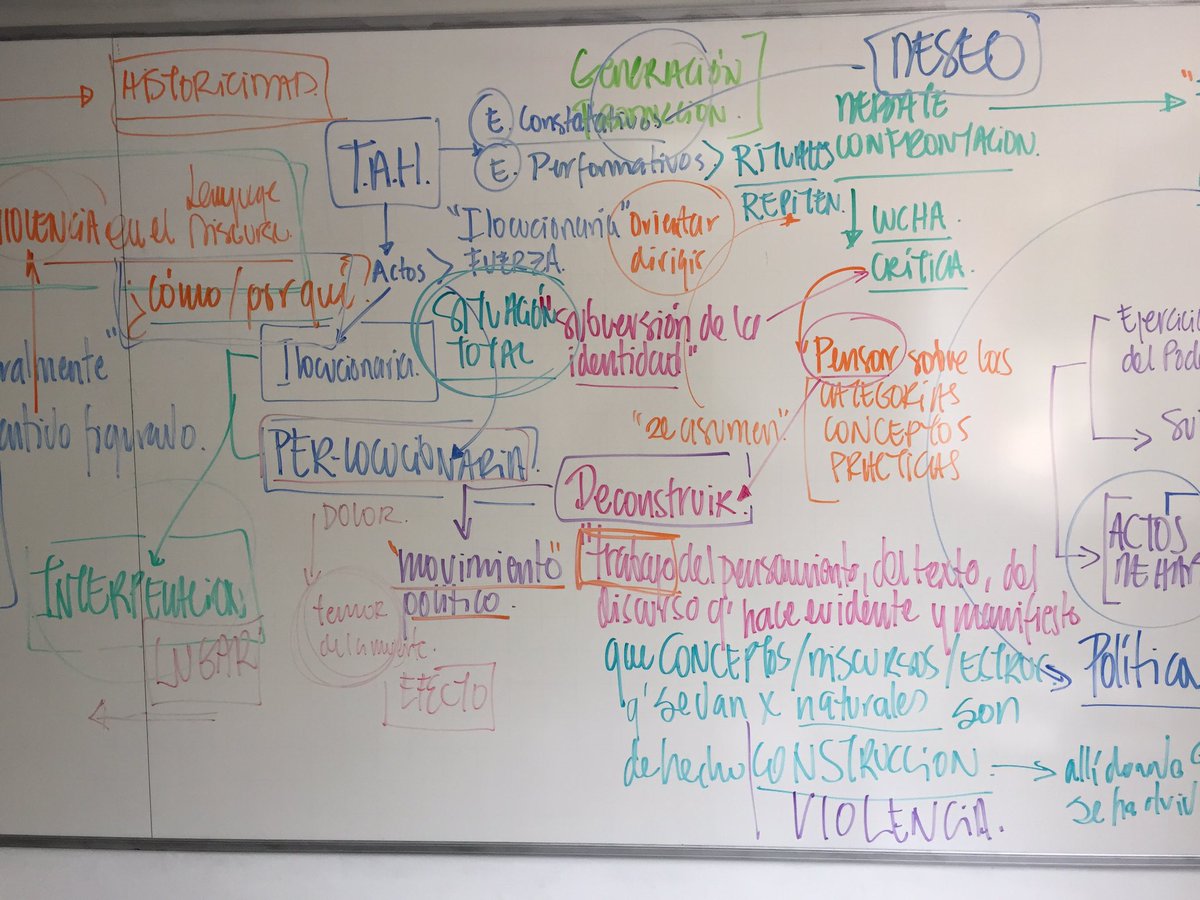 HISTORICIDAD.
GENERACIÓN
PRODUCCIÓN.
DESEO
DEBATE
CONFRONTACIÓN.
T.A.H.
E. Constatativos
E. Performativos > RITUALES
REPITEN.
LUCHA
CRÍTICA.
VIOLENCIA en el Lenguaje
Discurso.
¿cómo/por qué?
Actos >
"Ilocucionaria"
FUERZA.
orientar
dirigir
SITUACIÓN
TOTAL
"subversión de la
identidad"
Ilocucionaria.
PER-LOCUCIONARIA.
"Pensar sobre las
CATEGORÍAS
CONCEPTOS
PRÁCTICAS
"se asumen".
Ejercicio
del Poder
su
ralmente"
sentido figurado.
Deconstruir.
DOLOR.
temor
de la muerte.
"movimiento"
político.
EFECTO
INTERPELACIÓN
LUGAR
"trabajo del pensamiento, del texto, del
discurso q' hace evidente y manifiesto
que CONCEPTOS/DISCURSOS/ESTRUC
q' se dan x naturales son
de hecho CONSTRUCCIÓN
VIOLENCIA.
ACTOS
DE HABL
Política
allí donde
se ha olvi